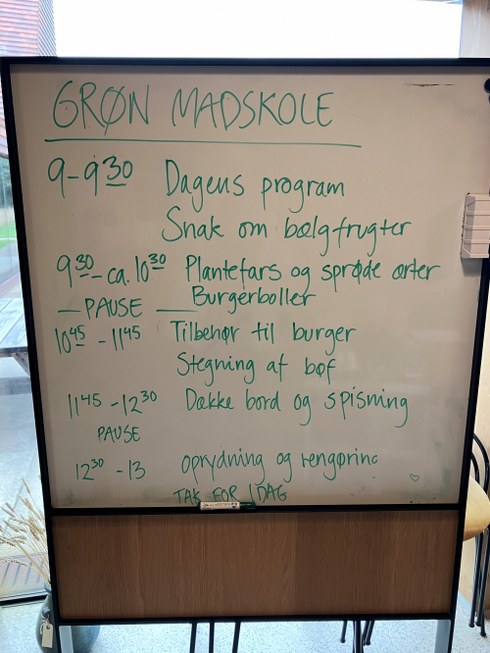 GRØN MADSKOLE
9-9 30 Dagens program
Snak om bælgfrugter
9 30 - ca. 10 30 Plantefars og sprøde ærter
— PAUSE — Burgerboller
10 45 - 11 45 Tilbehør til burger
Stegning af bøf
11 45 - 12 30 Dække bord og spisning
PAUSE
12 30 - 13 Oprydning og rengøring
TAK FOR I DAG